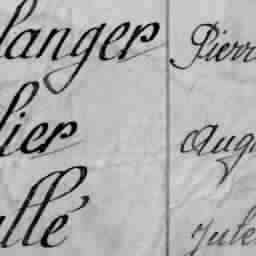 langer Pierr
lier Aug
ullé Jules